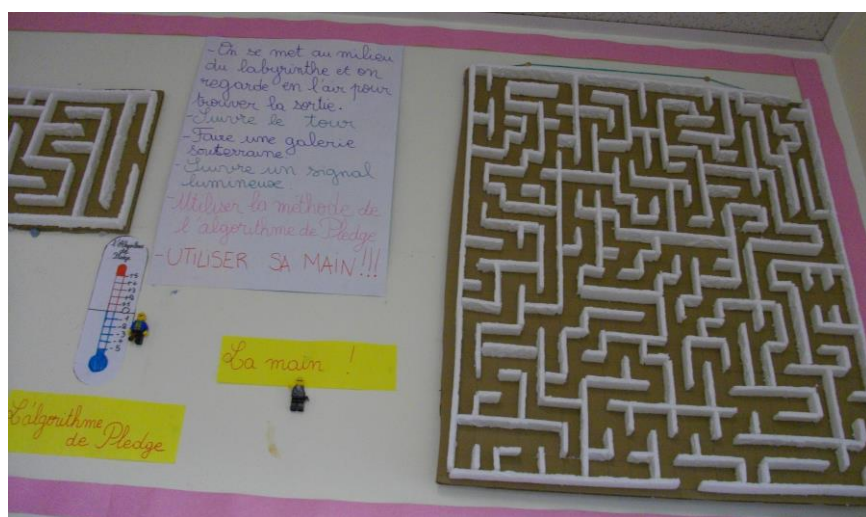 - On se met au milieu
du labyrinthe et on
regarde en l'air pour
trouver la sortie.
- Suivre le tour
- Faire une galerie
souterraine
- Suivre un signal
lumineux
- Utiliser la méthode de
l'algorithme de Pledge
- UTILISER SA MAIN!!!
La main !
L'algorithme
de Pledge